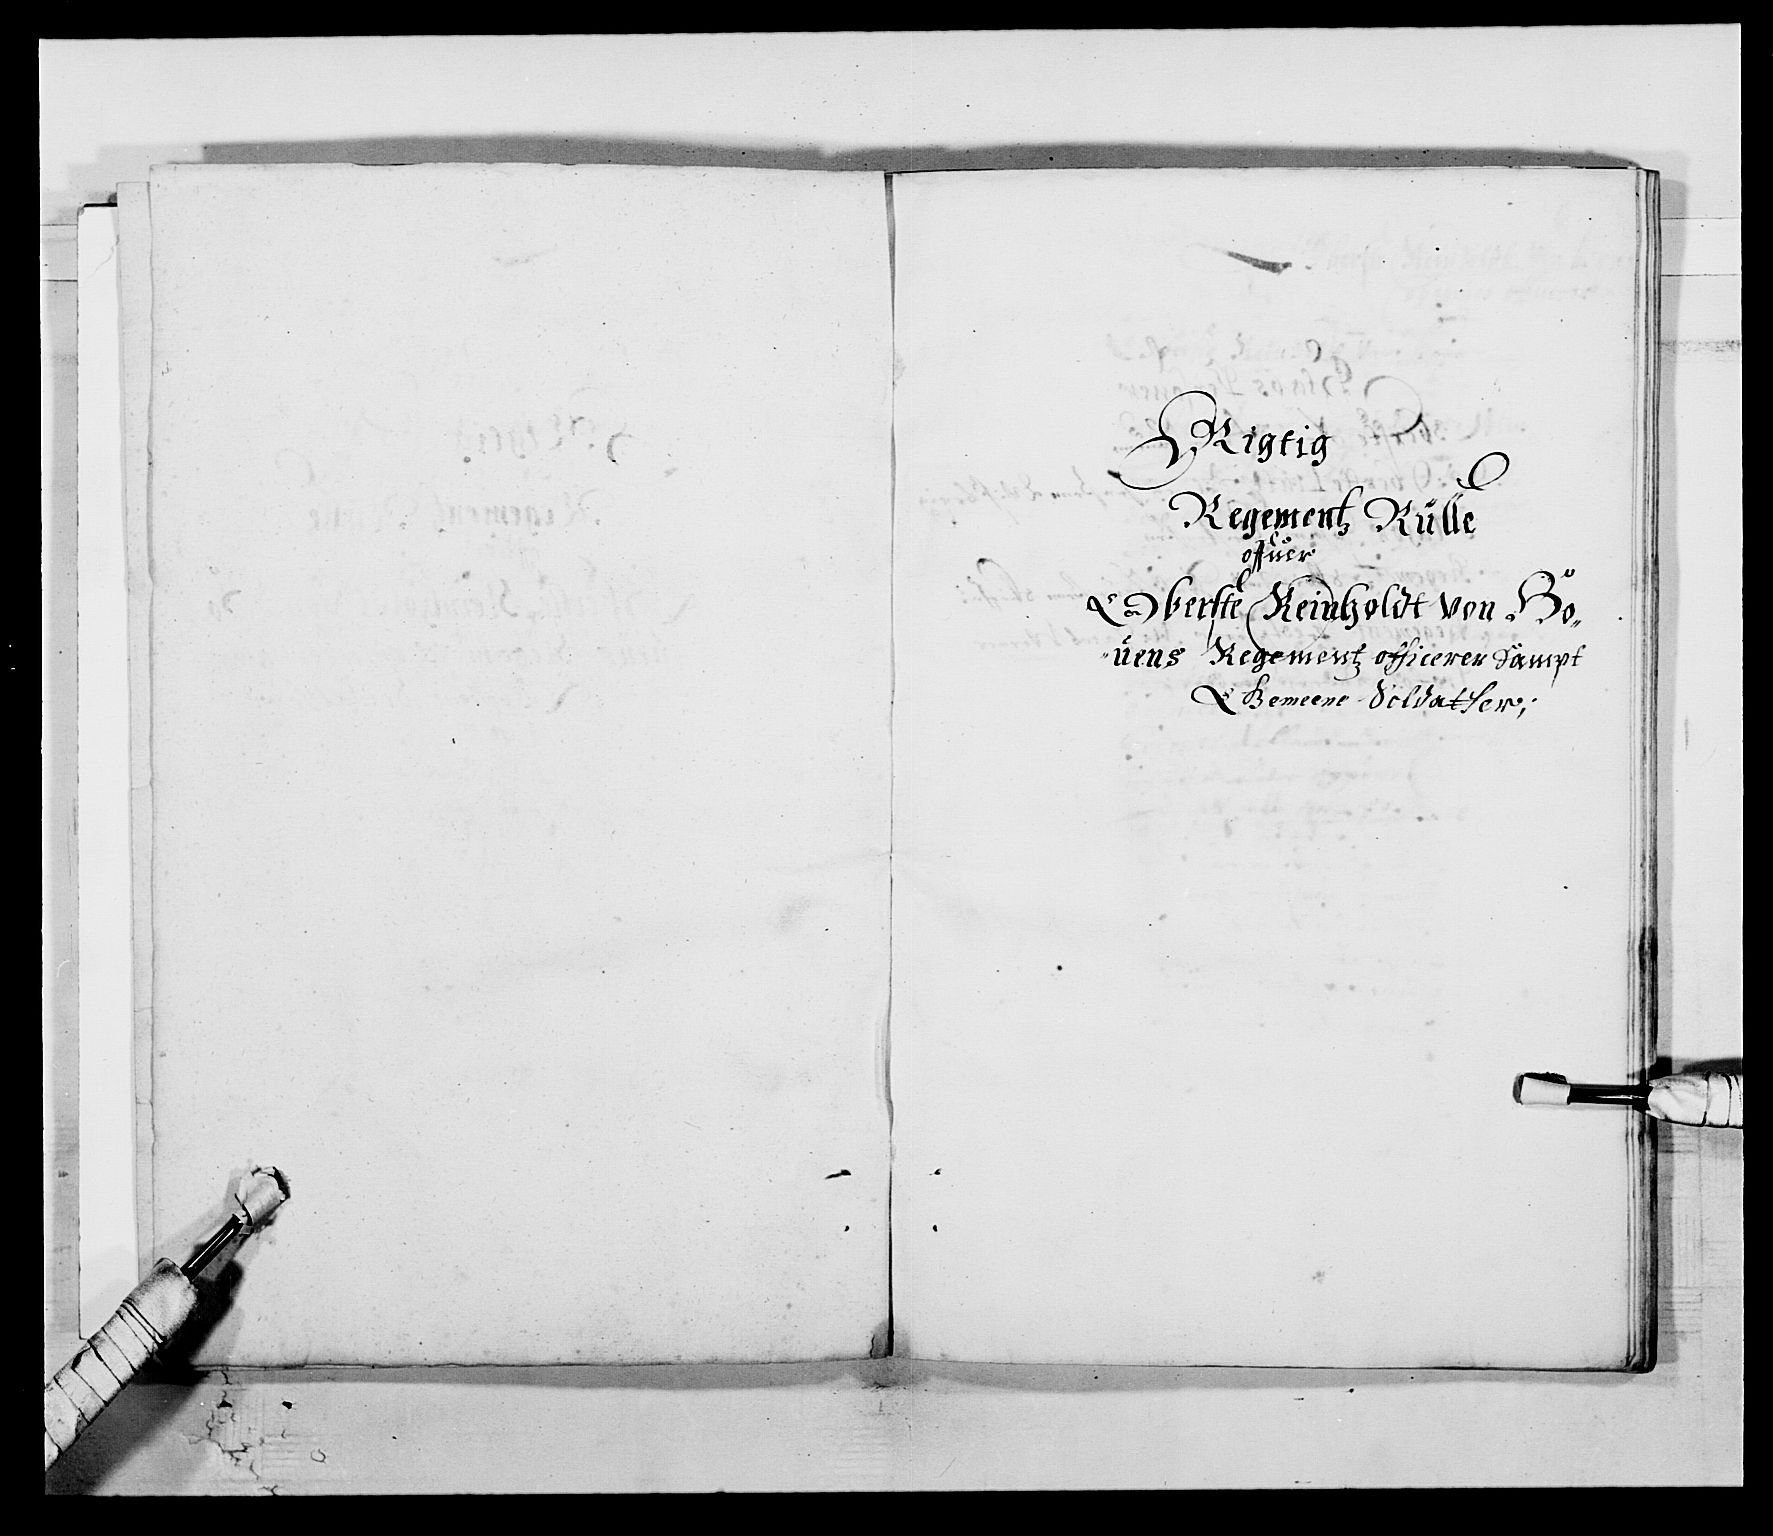 Rigtig
Regementz Rülle
offuer
Oberste Reinholdt von Bo„
„üens Regementz officerer Sampt
Gemeene Soldatter,